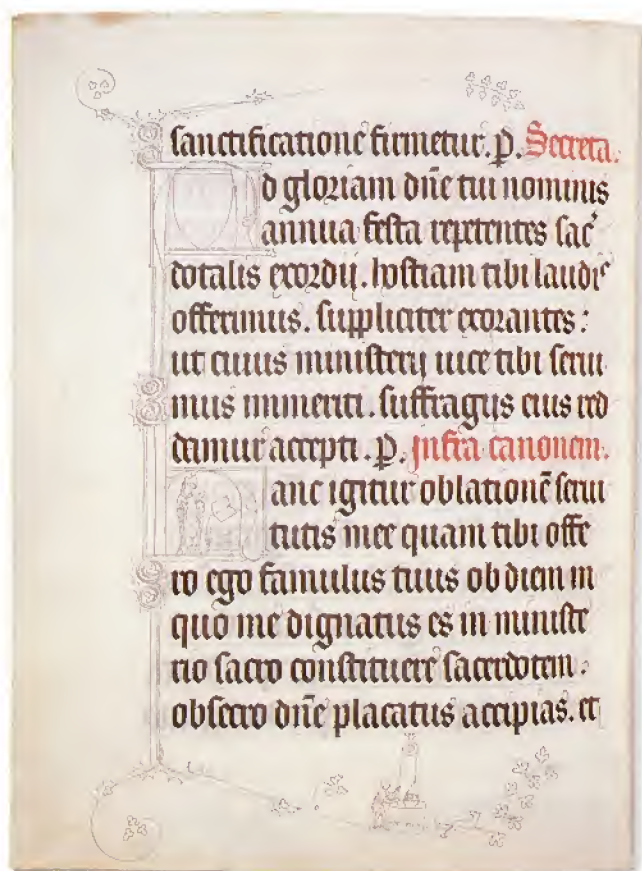 sanctificatione͂ firmetur. p. Secreta.
d gloriam dn͂e tui nominis
annua festa repetentes sac͛
dotalis exordij. hostiam tibi laudis
offerimus. suppliciter exorantes :
ut cuius ministerij uice tibi serui
mus immeriti. suffragijs eius red
damur accepti. p. Infra canonem.
anc igitur oblatione͂ serui
tutis mee quam tibi offe
ro ego famulus tuus ob diem in
quo me dignatus es in ministe
rio sacro constituere sacerdotem :
obsecro dn͂e placatus accipias. et